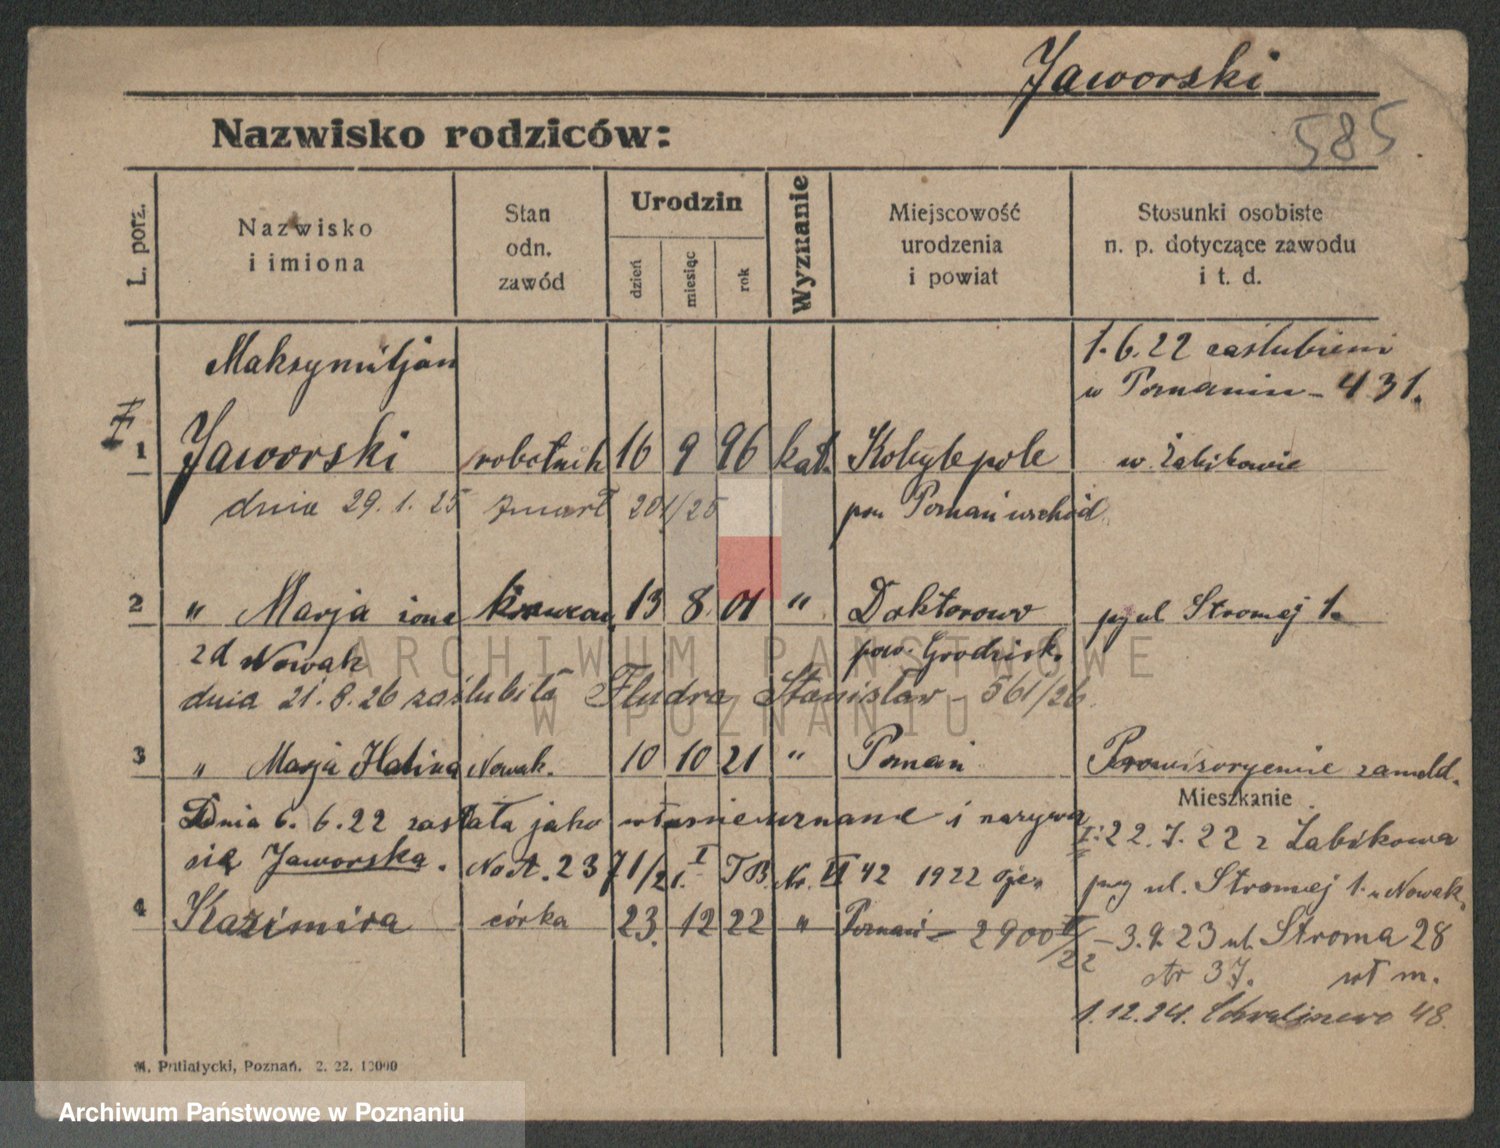 Jaworski
Nazwisko rodziców:
585
L. porz.
Nazwisko
i imiona
Stan
odn.
zawód
Urodzin
dzień
miesiąc
rok
Wyznanie
Miejscowość
urodzenia
i powiat
Stosunki osobiste
n. p. dotyczące zawodu
i t. d.
Maksymiljan
1.6.22 zaślubieni
w Poznaniu - 431.
1 Jaworski robotnik 16 9 96 kat. Kobylepole w Żabikowie
dnia 29.1.25 zmarł 201/25 pow. Poznań wschód
2 " Marja żona 13 8 01 " Doktorowo przy ul Stromej 1.
zd Nowak pow. Grodzisk.
dnia 21.8.26 zaślubiła Fludra Stanisław - 561/26
3 " Marja Halina Nowak. 10 10 21 " Poznań Prowizorycznie zameld.
Mieszkanie
Dnia 6.6.22 została jako własnieuznane i nazywa
22.7.22 z Żabikowa
się Jaworska. No A. 2371/21. I TB. Nr. VI 42 1922
przy ul. Stromej 1 u Nowak.
4 Kazimira córka 23. 12 22 " Poznań - 2900 I/22
- 3.9.23 ul. Stroma 28
str 37. wł m.
1.12.24. 48.
M. Putiatycki, Poznań. 2. 22. 10000
ARCHIWUM PAŃSTWOWE
W POZNANIU
Archiwum Państwowe w Poznaniu